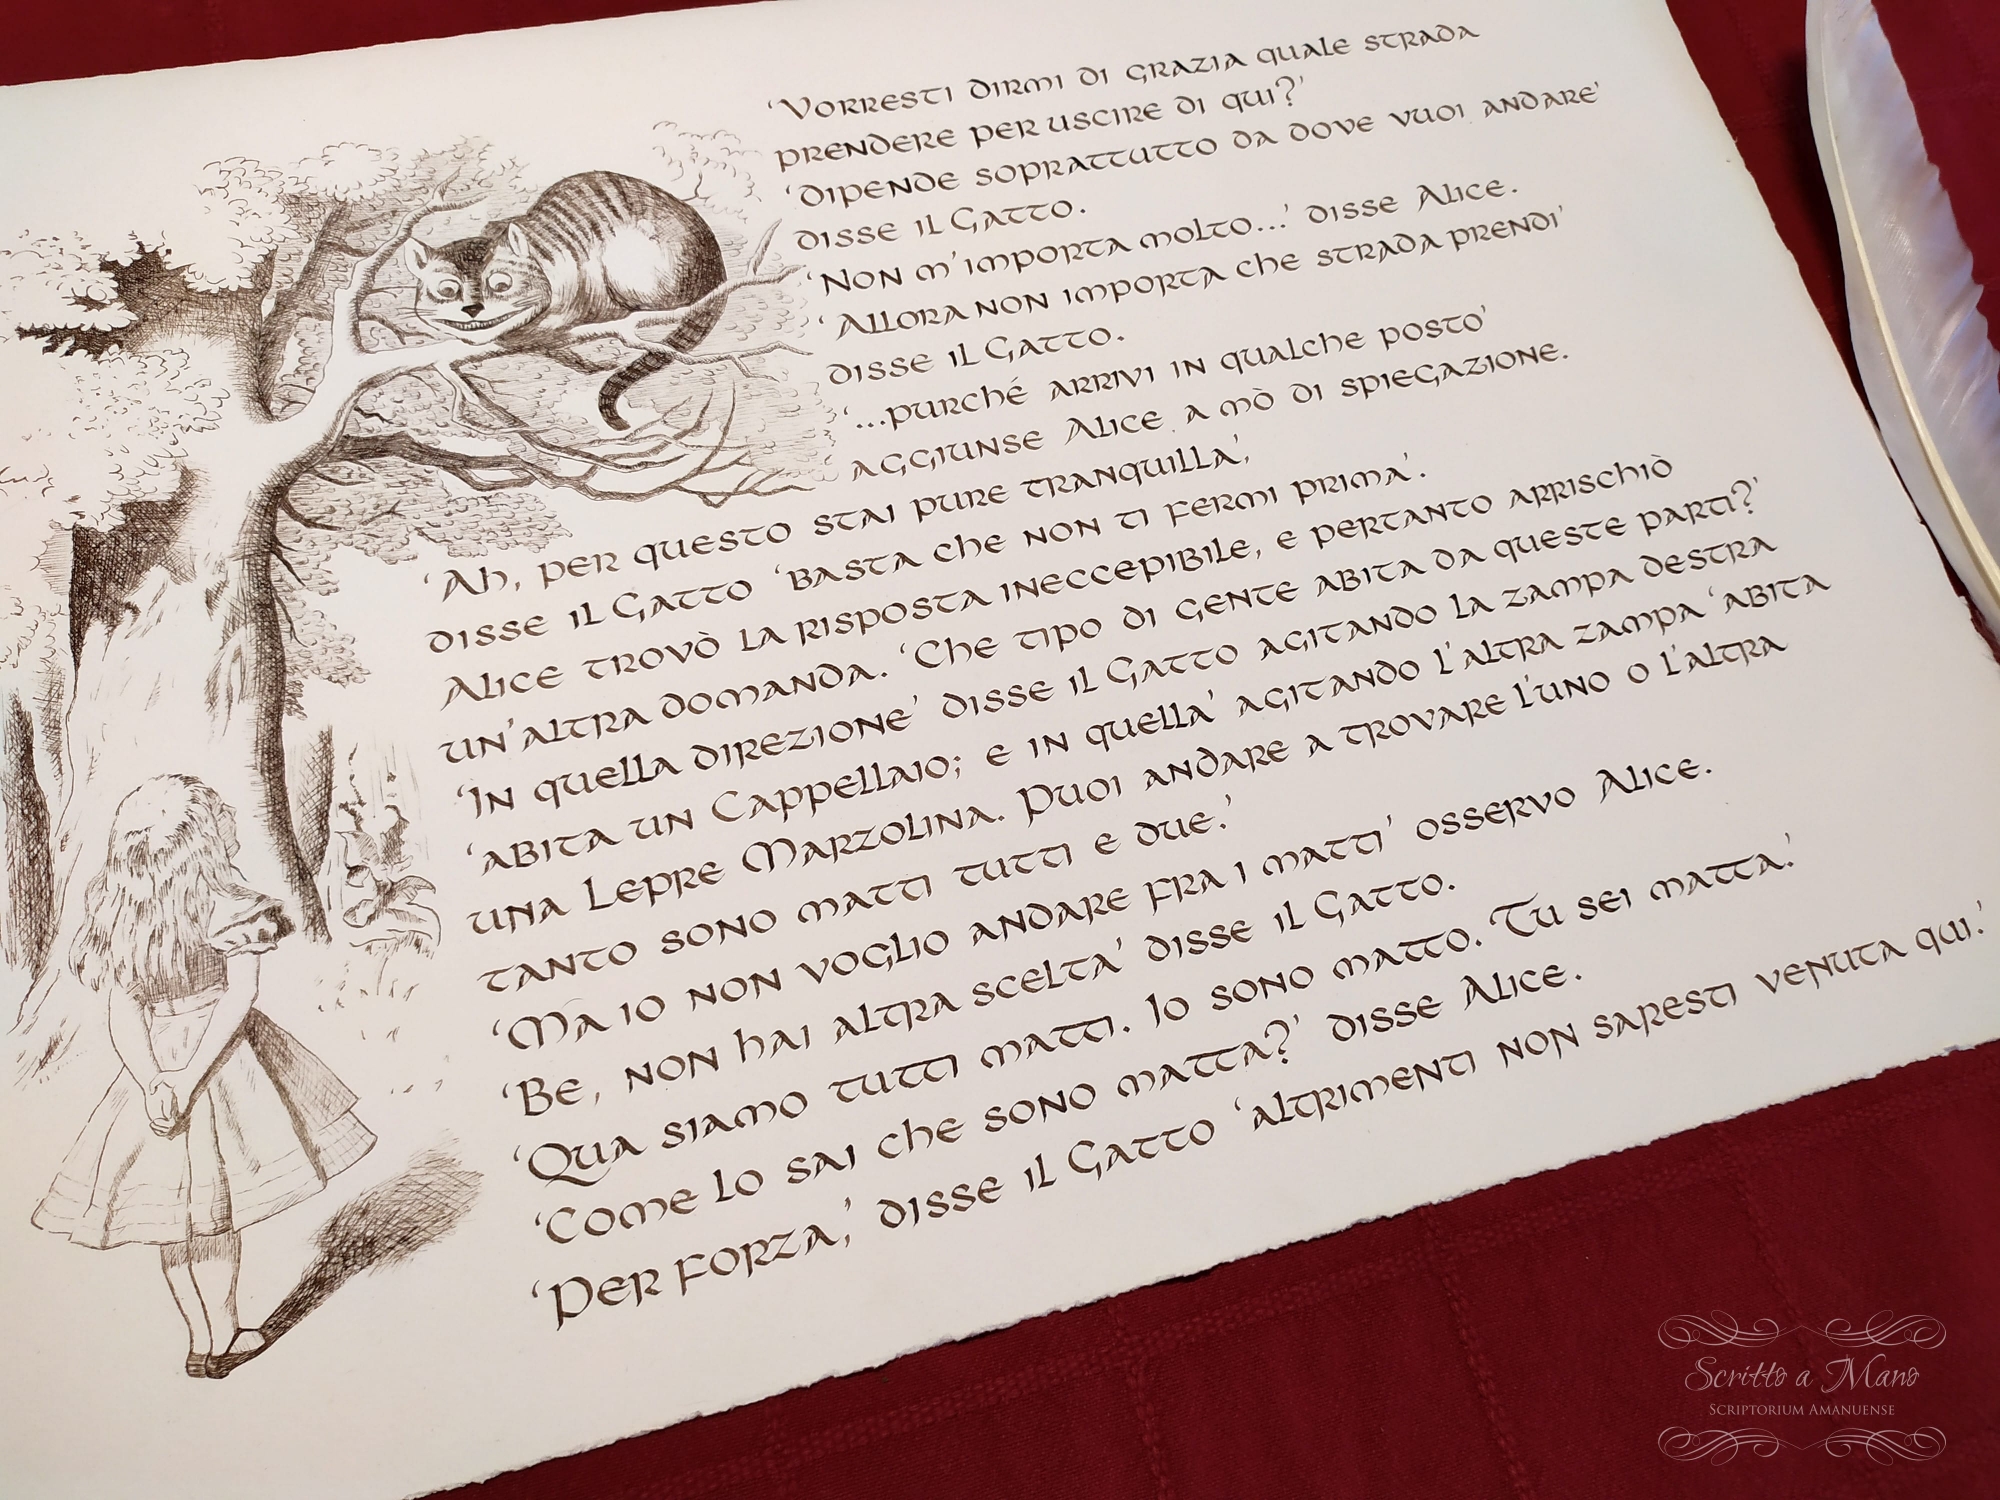 'Vorresti dirmi di grazia quale strada
prendere per uscire di qui?'
'Dipende soprattutto da dove vuoi andare'
disse il Gatto.
'Non m'importa molto...' disse Alice.
'Allora non importa che strada prendi'
disse il Gatto.
'...purché arrivi in qualche posto'
aggiunse Alice a mò di spiegazione.
'Ah, per questo stai pure tranquilla',
disse il Gatto 'basta che non ti fermi prima'.
Alice trovò la risposta ineccepibile, e pertanto arrischiò
un'altra domanda. 'Che tipo di gente abita da queste parti?'
'In quella direzione' disse il Gatto agitando la zampa destra
'abita un Cappellaio; e in quella' agitando l'altra zampa 'abita
una Lepre Marzolina. Puoi andare a trovare l'uno o l'altra
tanto sono matti tutti e due.'
'Ma io non voglio andare fra i matti' osservo Alice.
'Be, non hai altra scelta' disse il Gatto.
'Qua siamo tutti matti. Io sono matto. Tu sei matta.'
'Come lo sai che sono matta?' disse Alice.
'Per forza,' disse il Gatto 'altrimenti non saresti venuta qui.'
Scritto a Mano
Scriptorium Amanuense